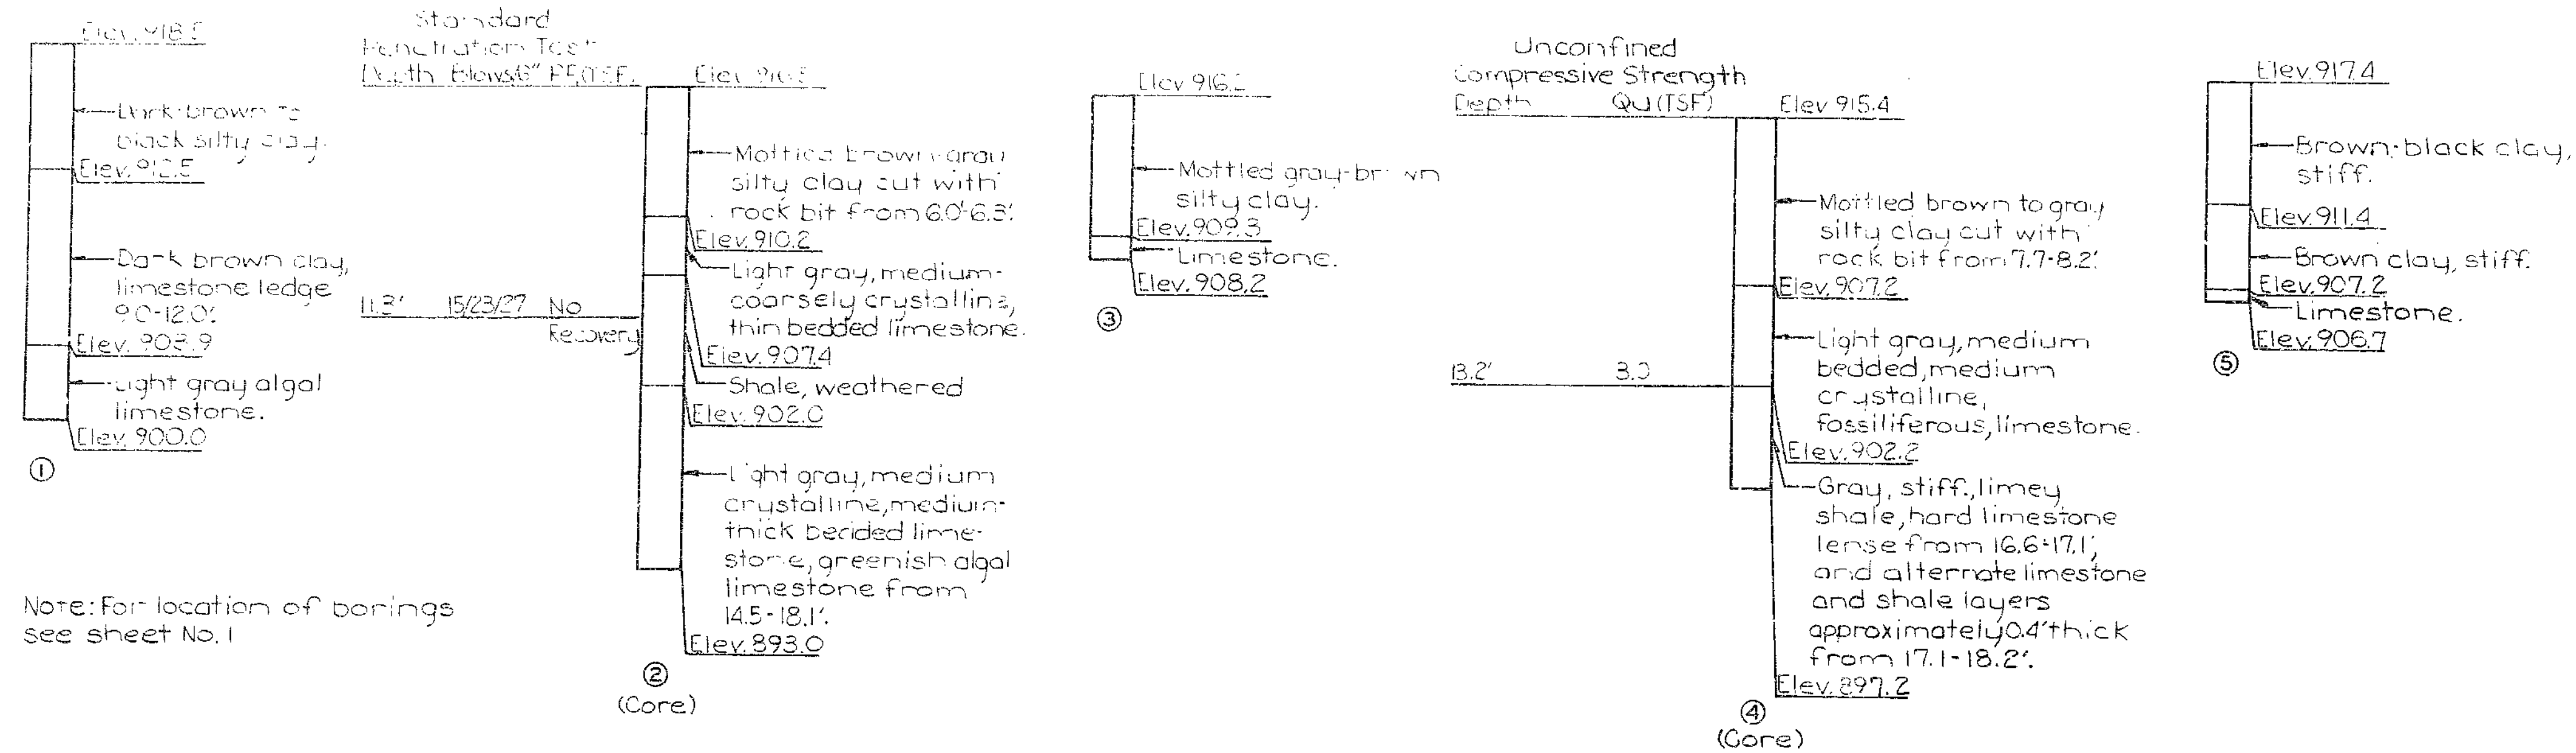 Elev. 918.5
Dark-brown to
black silty clay.
Elev. 912.5
Dark brown clay,
limestone ledge
9.0-12.0'.
Elev. 903.9
Light gray algal
limestone.
Elev. 900.0
①
Note: For location of borings
see sheet No. 1
Standard
Penetration Test
Depth Blows/6"
Elev. 916.5
Mottled brown-gray
silty clay cut with
rock bit from 6.0'-6.3'.
Elev. 910.2
Light gray, medium-
coarsely crystalline,
thin bedded limestone.
11.3' 15/23/27 No
Recovery
Elev. 907.4
Shale, weathered
Elev. 902.0
Light gray, medium
crystalline, medium-
thick bedded lime-
stone, greenish algal
limestone from
14.5-18.1'.
Elev. 893.0
②
(Core)
Elev 916.2
Mottled gray-brown
silty clay.
Elev. 909.3
Limestone.
Elev. 908.2
③
Unconfined
Compressive Strength
Depth QU (TSF)
Elev 915.4
Mottled brown to gray
silty clay cut with
rock bit from 7.7-8.2'.
Elev. 907.2
Light gray, medium
bedded, medium
crystalline,
fossiliferous, limestone.
13.2' 3.0
Elev. 902.2
Gray, stiff., limey
shale, hard limestone
lense from 16.6-17.1',
and alternate limestone
and shale layers
approximately 0.4' thick
from 17.1-18.2'.
Elev. 897.2
④
(Core)
Elev. 917.4
Brown-black clay,
stiff.
Elev. 911.4
Brown clay, stiff.
Elev. 907.2
Limestone.
Elev. 906.7
⑤